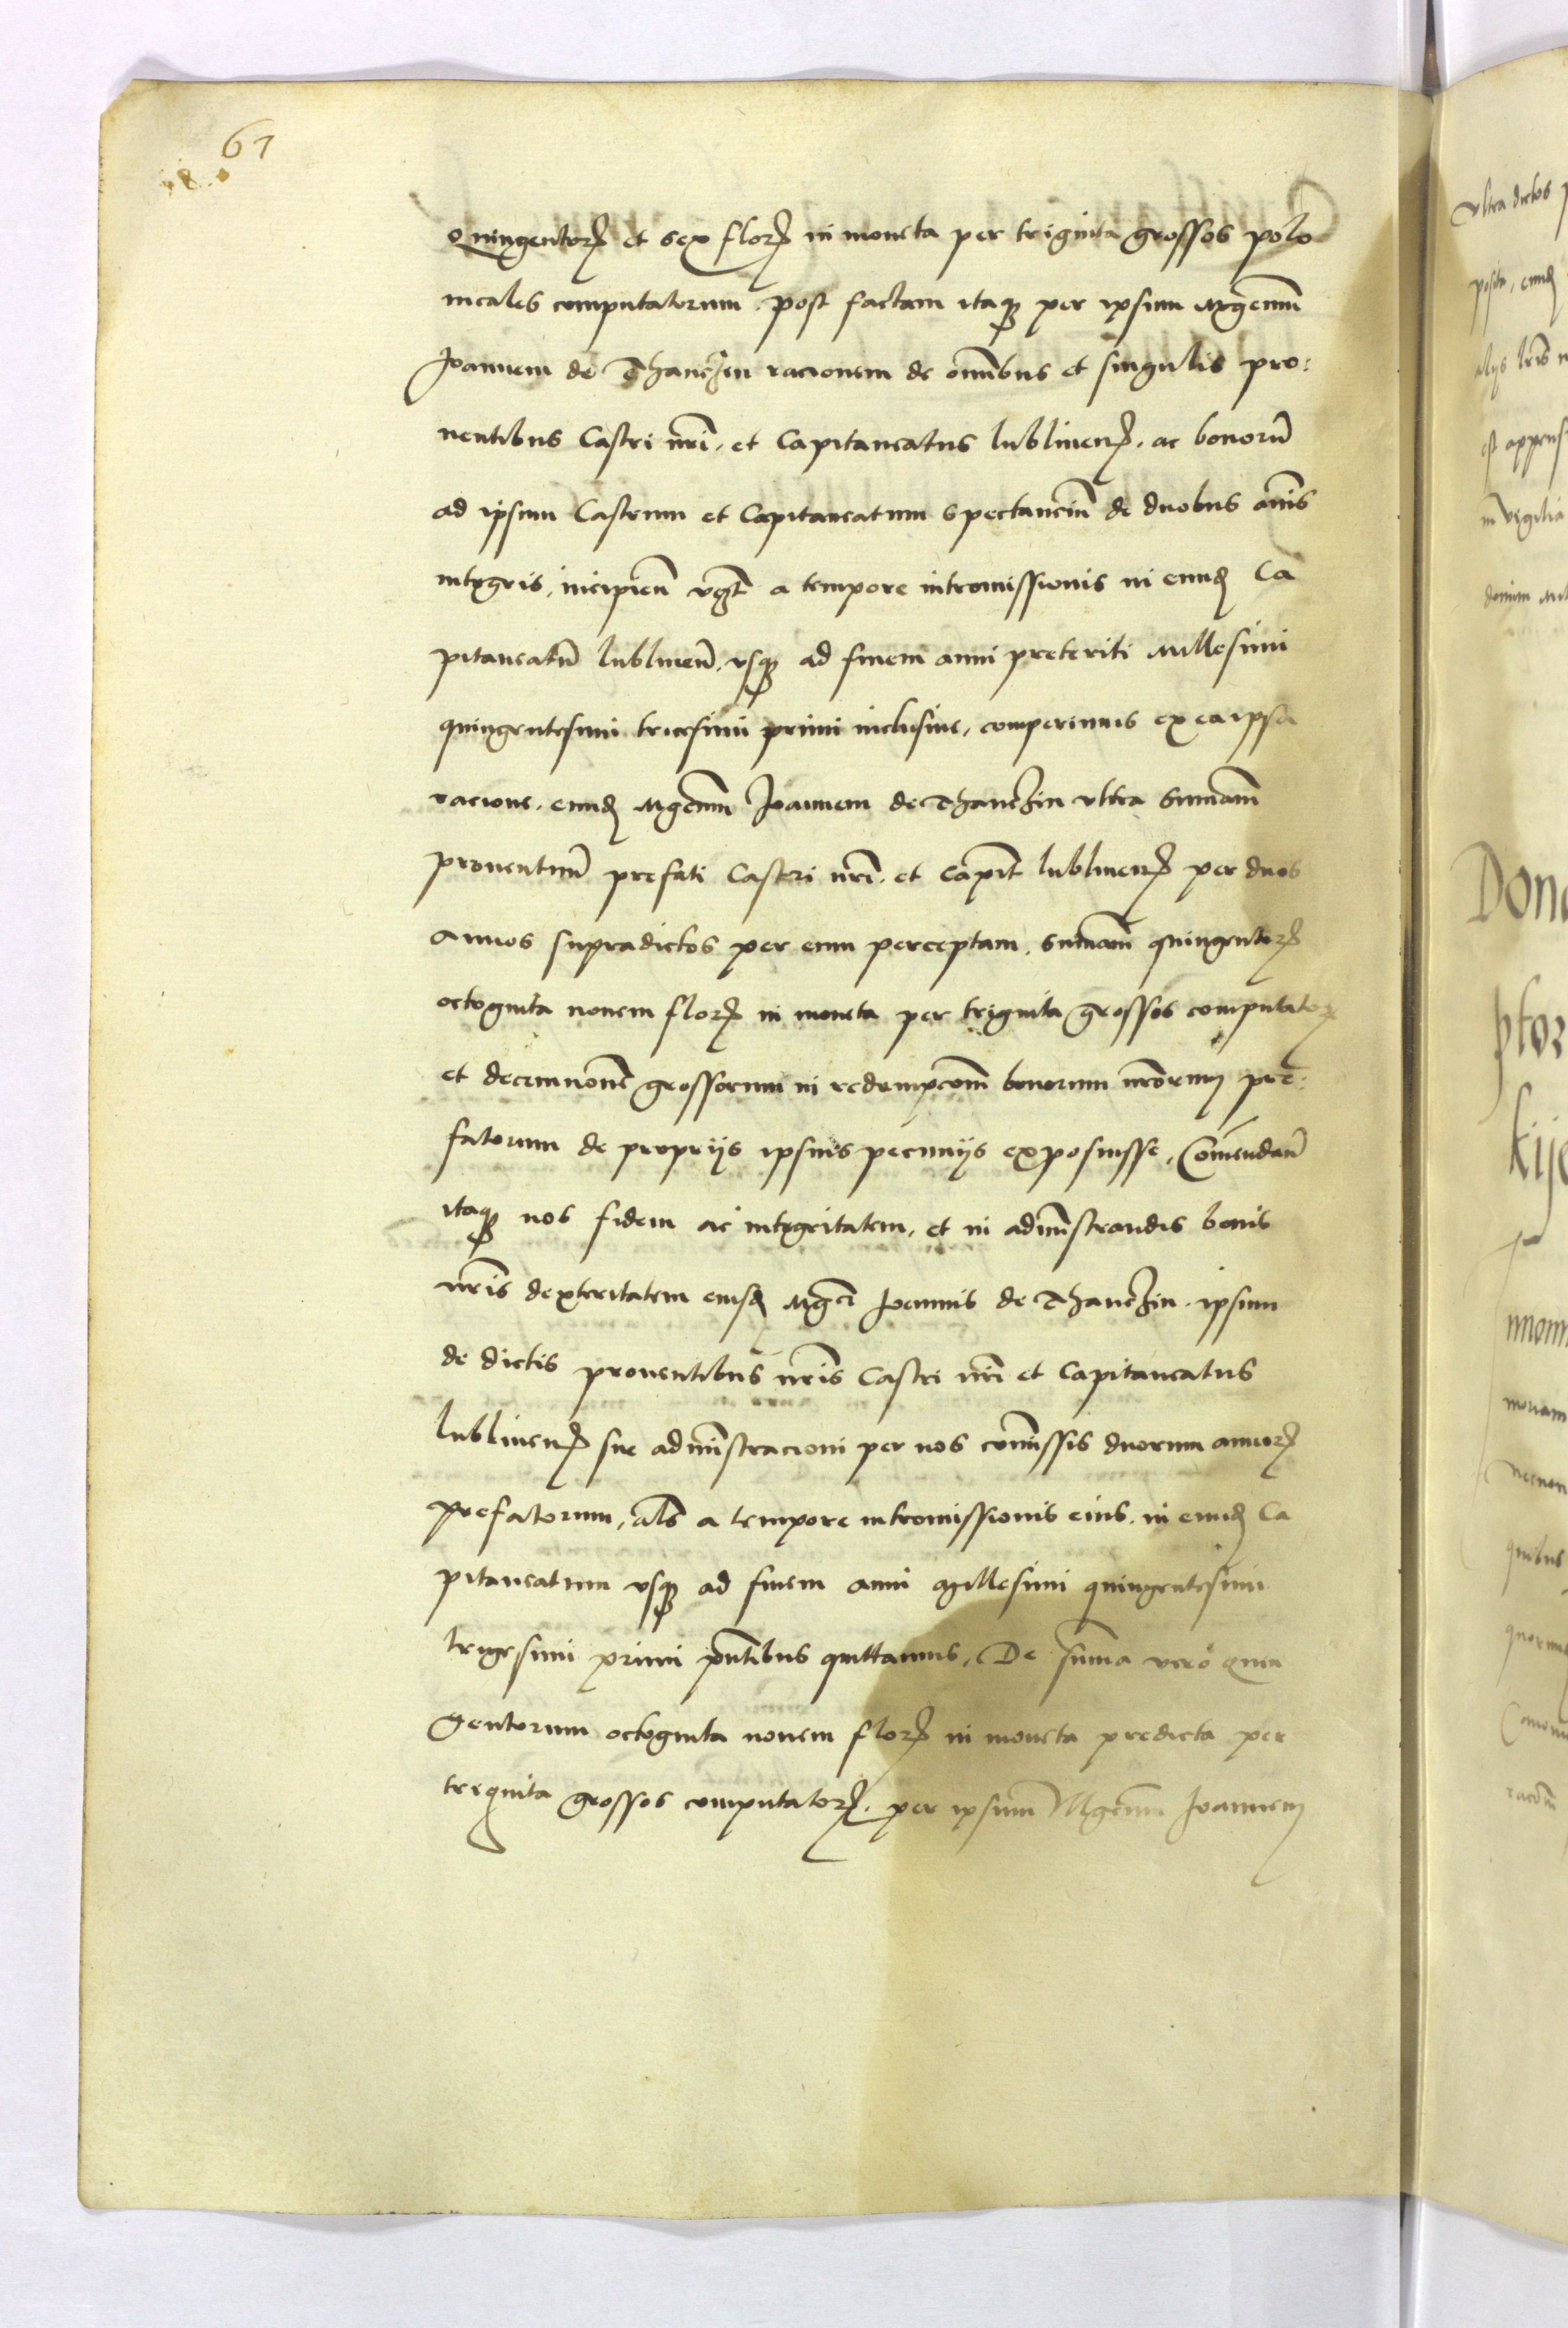 67
Quingentorꝝ et sex florꝝ in moneta per triginta grossos polo
nicales computatorum. post factam itaqꝫ per ipsum Mgcum
Joannem de Thanczin racionem de omnibus et singulis pro:
uentibus Castri nri. et Capitaneatus lublinenꝝ. ac bonorū
ad ipsum Castrum et Capitaneatum spectanciū de duobus annis
integris, incipieñ vꝫt a tempore intromissionis in eundꝫ Ca
pitaneatū lublineñ. vsqꝫ ad finem anni preteriti Millesimi
quingentesimi tricesimi primi inclusiue, comperimus ex ea ipsa
racione. eundꝫ Mgcum Joannem de Thanczin vltra sumam̄
prouentuum̄ prefati Castri nri. et Capit̄ lublinenꝝ per duos
annos supradictos per eum perceptam. sumam̄ quingentorꝝ
octoginta nouem florꝝ in moneta per triginta grossos computatorꝝ
et decemnouē grossorum in redempcōm bonorum nrorum pre:
fatorum de proprijs ipsius pecunijs exposuisse, Comendan̄
itaqꝫ nos fidem ac integritatem, et in adminstrandis bonis
nris dexteritatem eiusdꝫ Mgci Joannis de Thanczin. ipsum
de dictis prouentibus nris Castri nri et Capitaneatus
lublinenꝝ sue adminstracioni per nos comissis duorum annorꝝ
prefatorum, als a tempore intromissionis eius. in eundꝫ Ca
pitaneatum vsqꝫ ad finem anni Millesimi quingentesimi
trigesimi primi pntibus quittamus, De suma vero quin
gentorum octoginta nouem florꝝ in moneta predicta per
triginta grossos computatorꝝ. per ipsum Mgcum Joannem
vltra dictos
posita, eundꝫ
alijs lris
est appens
in vigilia
Dona
ptor
kije